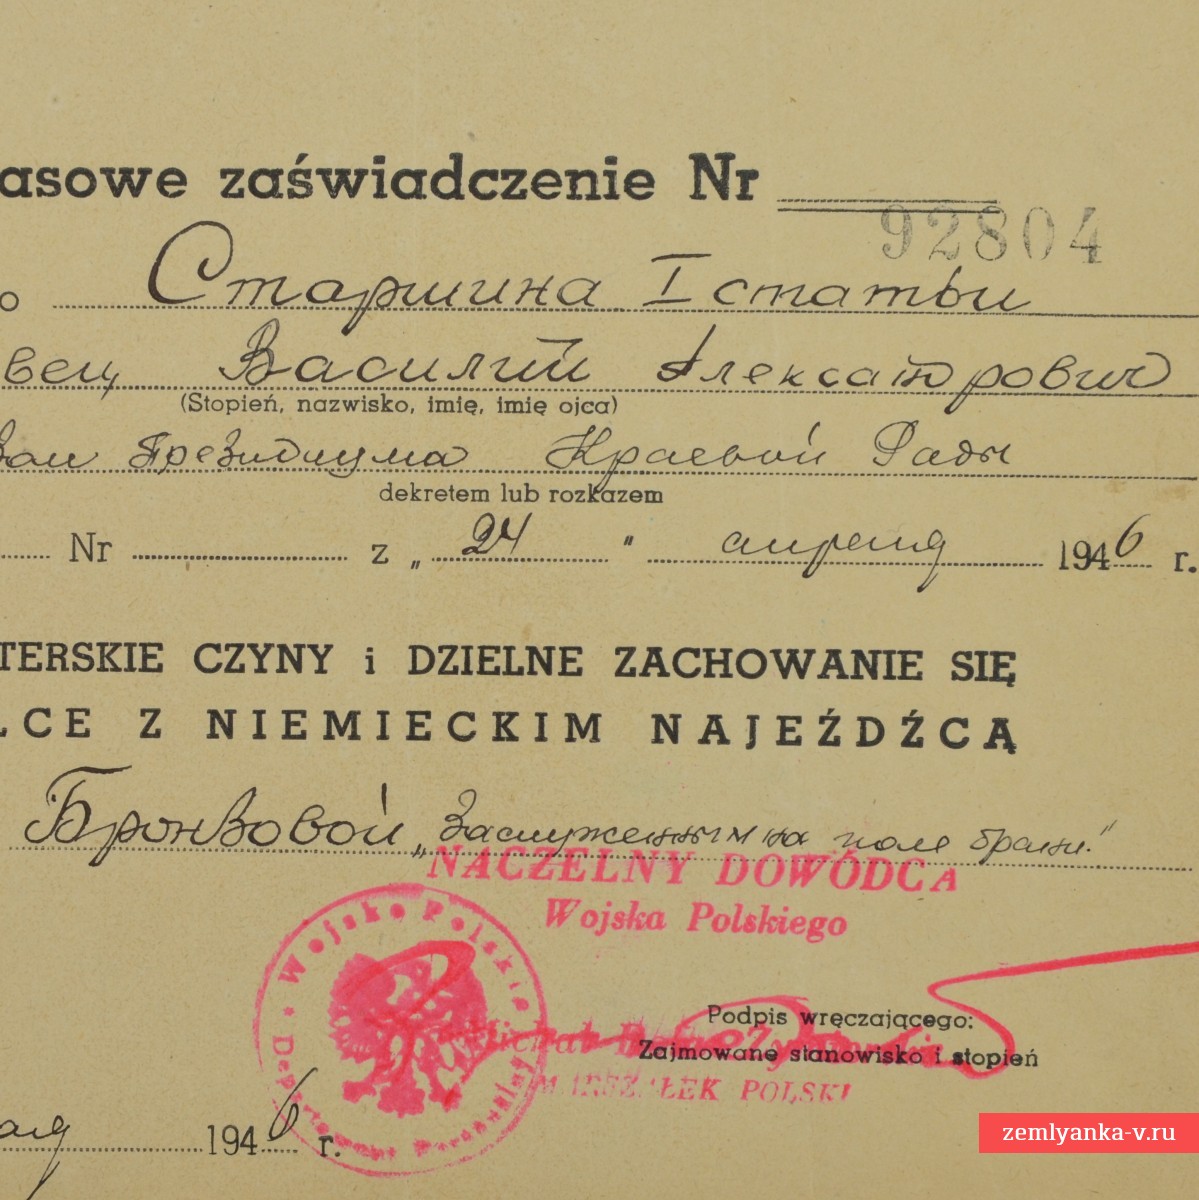 asowe zaświadczenie Nr
92804
o Старшина I статьи
вец Василий Алексатрович
(Stopień, nazwisko, imię, imię ojca)
Президиума Краевой Рады
dekretem lub rozkazem
Nr z „ 24 " апреля 1946 r.
TERSKIE CZYNY i DZIELNE ZACHOWANIE SIĘ
LCE Z NIEMIECKIM NAJEŹDŹCĄ
Бронзовой „Заслуженным на поле брани."
NACZELNY DOWÓDCA
Wojska Polskiego
Wojsko Polskie
Departament Personalny
Podpis wręczającego:
Michał
Zajmowane stanowisko i stopień
MARSZAŁEK POLSKI
1946 r.
zemlyanka-v.ru